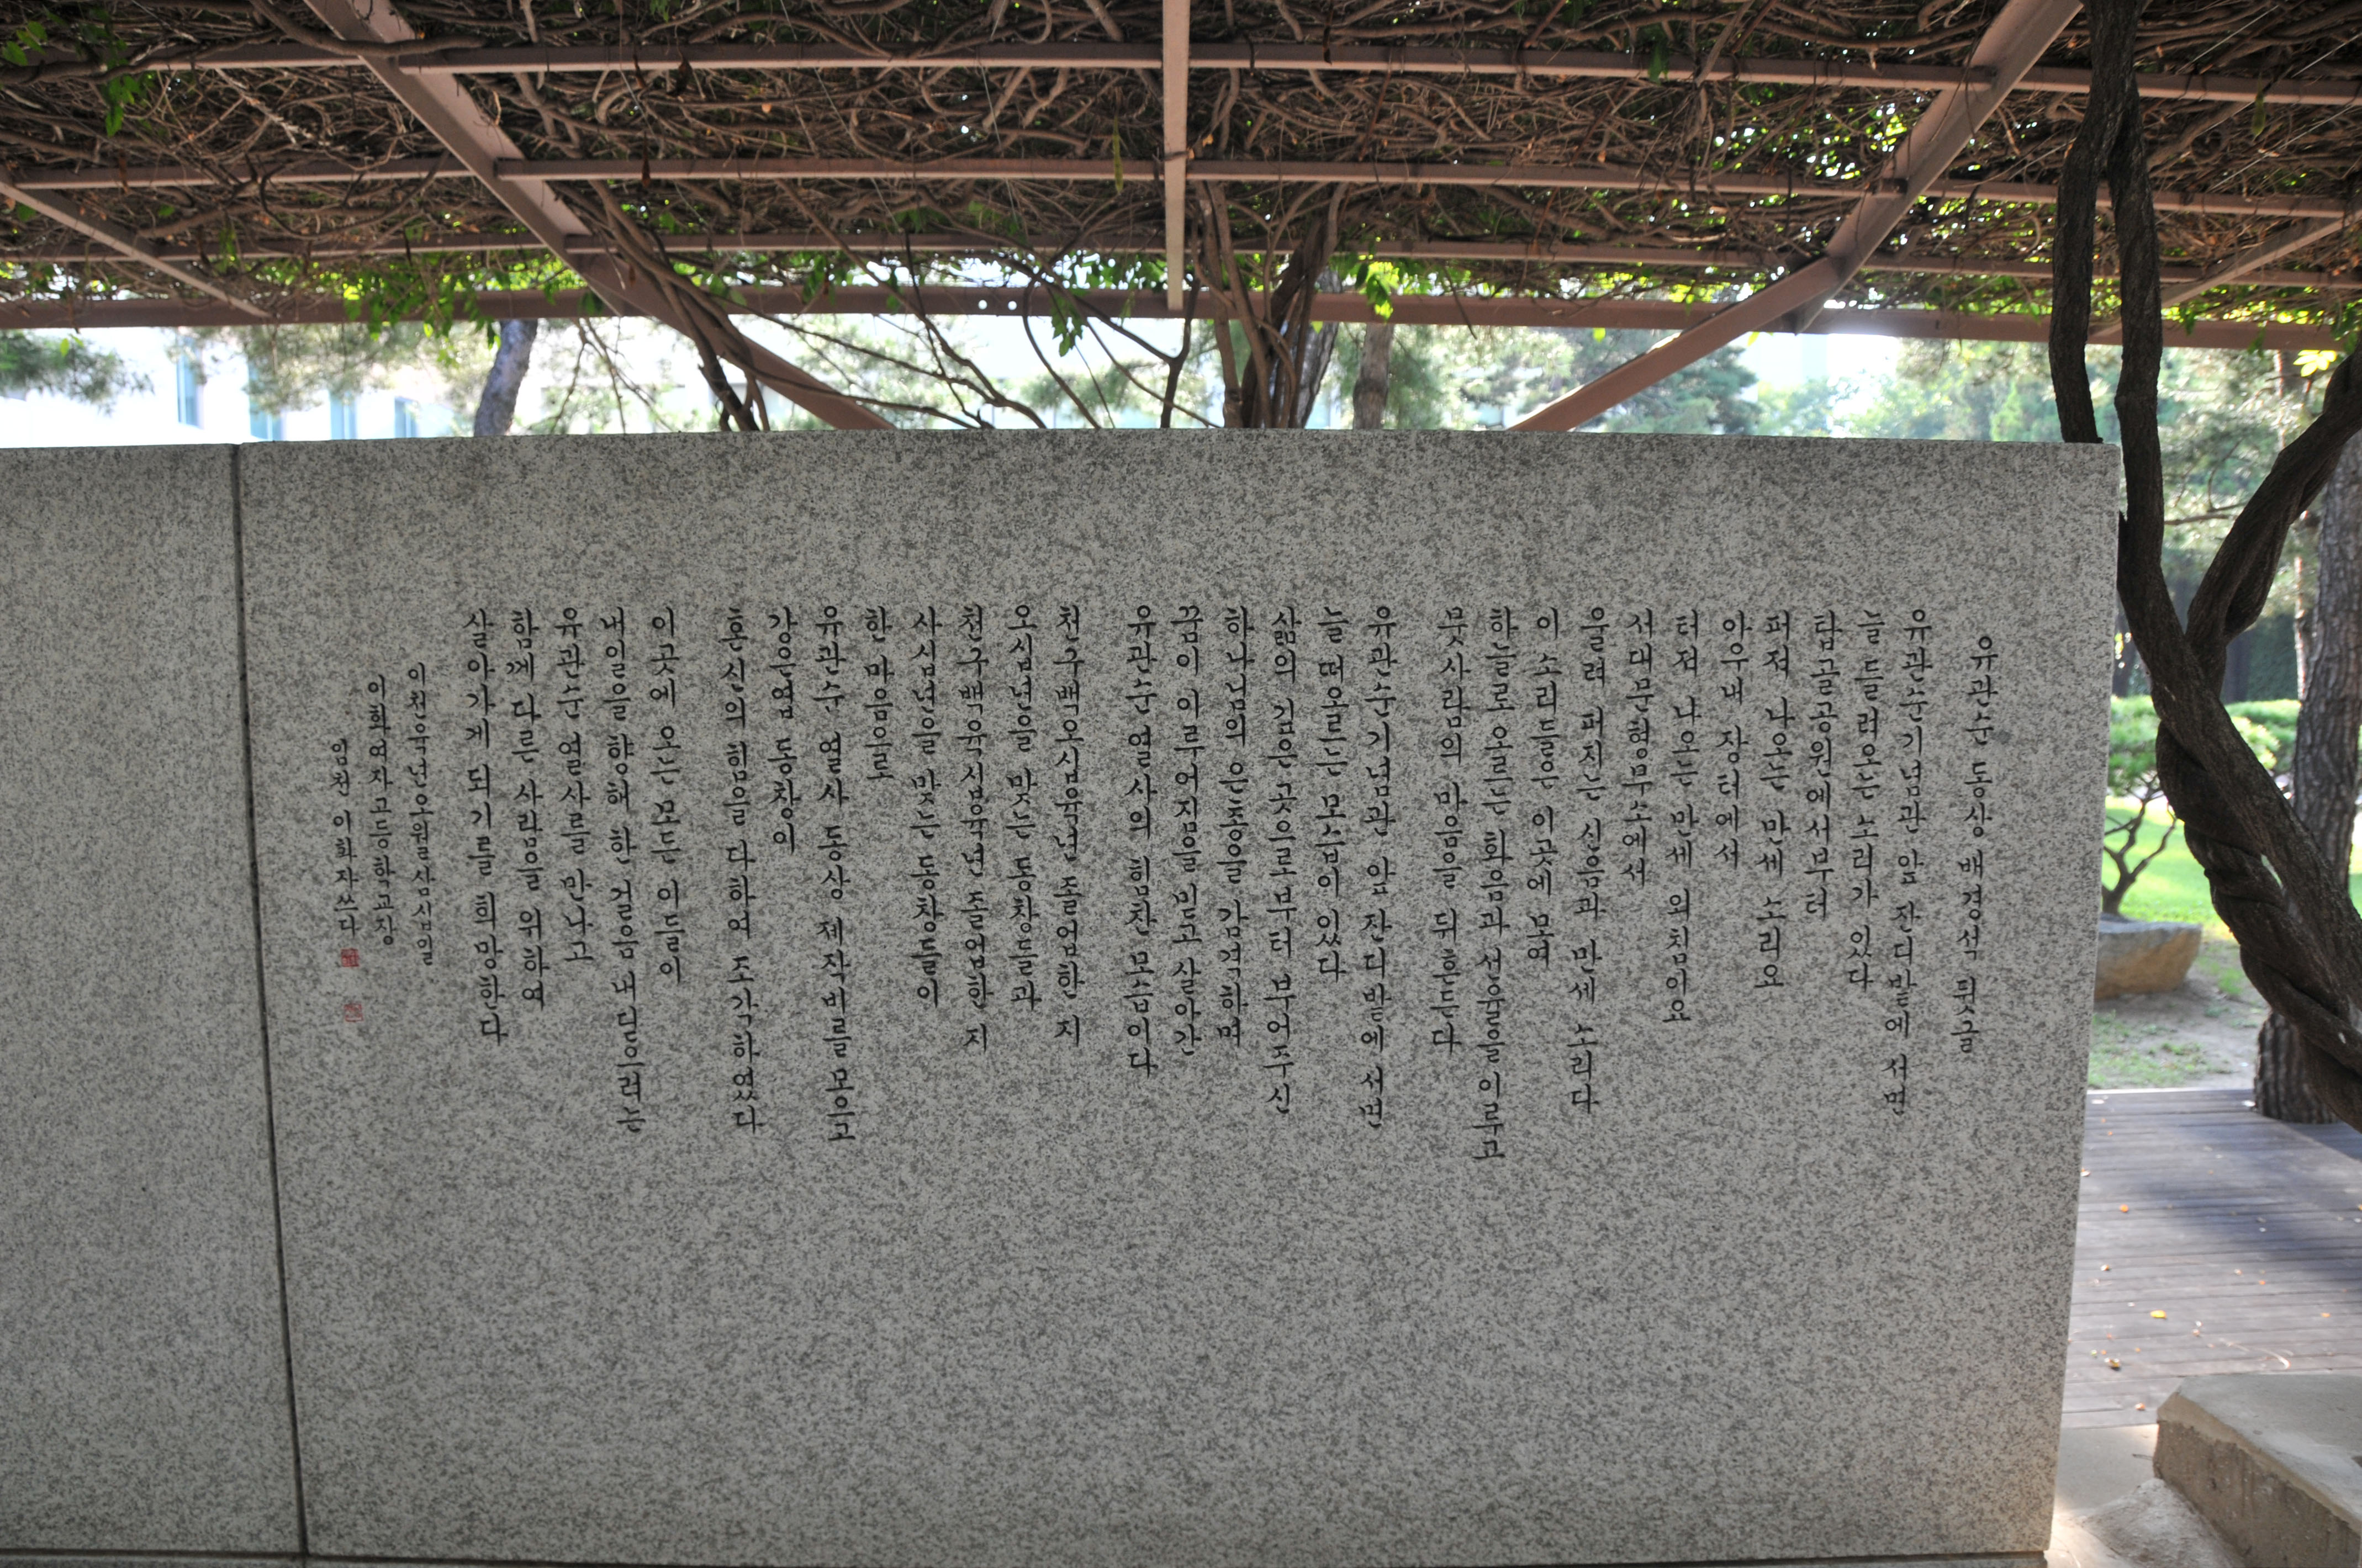 유관순 동상 배경석 뒷글
유관순기념관 앞 잔디밭에 서면
늘 들려오는 소리가 있다
탑골공원에서부터
퍼져 나오는 만세 소리요
아우내 장터에서
터져 나오는 만세 외침이요
서대문형무소에서
울려 퍼지는 신음과 만세 소리다
이 소리들은 이곳에 모여
하늘로 오르는 화음과 선율을 이루고
뭇사람의 마음을 뒤흔든다
유관순기념관 앞 잔디밭에 서면
늘 떠오르는 모습이 있다
삶의 깊은 곳으로부터 부어주신
하나님의 은총을 감격하며
꿈이 이루어짐을 믿고 살아간
유관순 열사의 힘찬 모습이다
천구백오십육년 졸업한 지
오십년을 맞는 동창들과
천구백육십육년 졸업한 지
사십년을 맞는 동창들이
한 마음으로
유관순 열사 동상 제작비를 모으고
강은엽 동창이
혼신의 힘을 다하여 조각하였다
이곳에 오는 모든 이들이
내일을 향해 한 걸음 내딛으려는
유관순 열사를 만나고
함께 다른 사람을 위하여
살아가게 되기를 희망한다
이천육년오월삼십일
이화여자고등학교장
심전 이화자쓰다